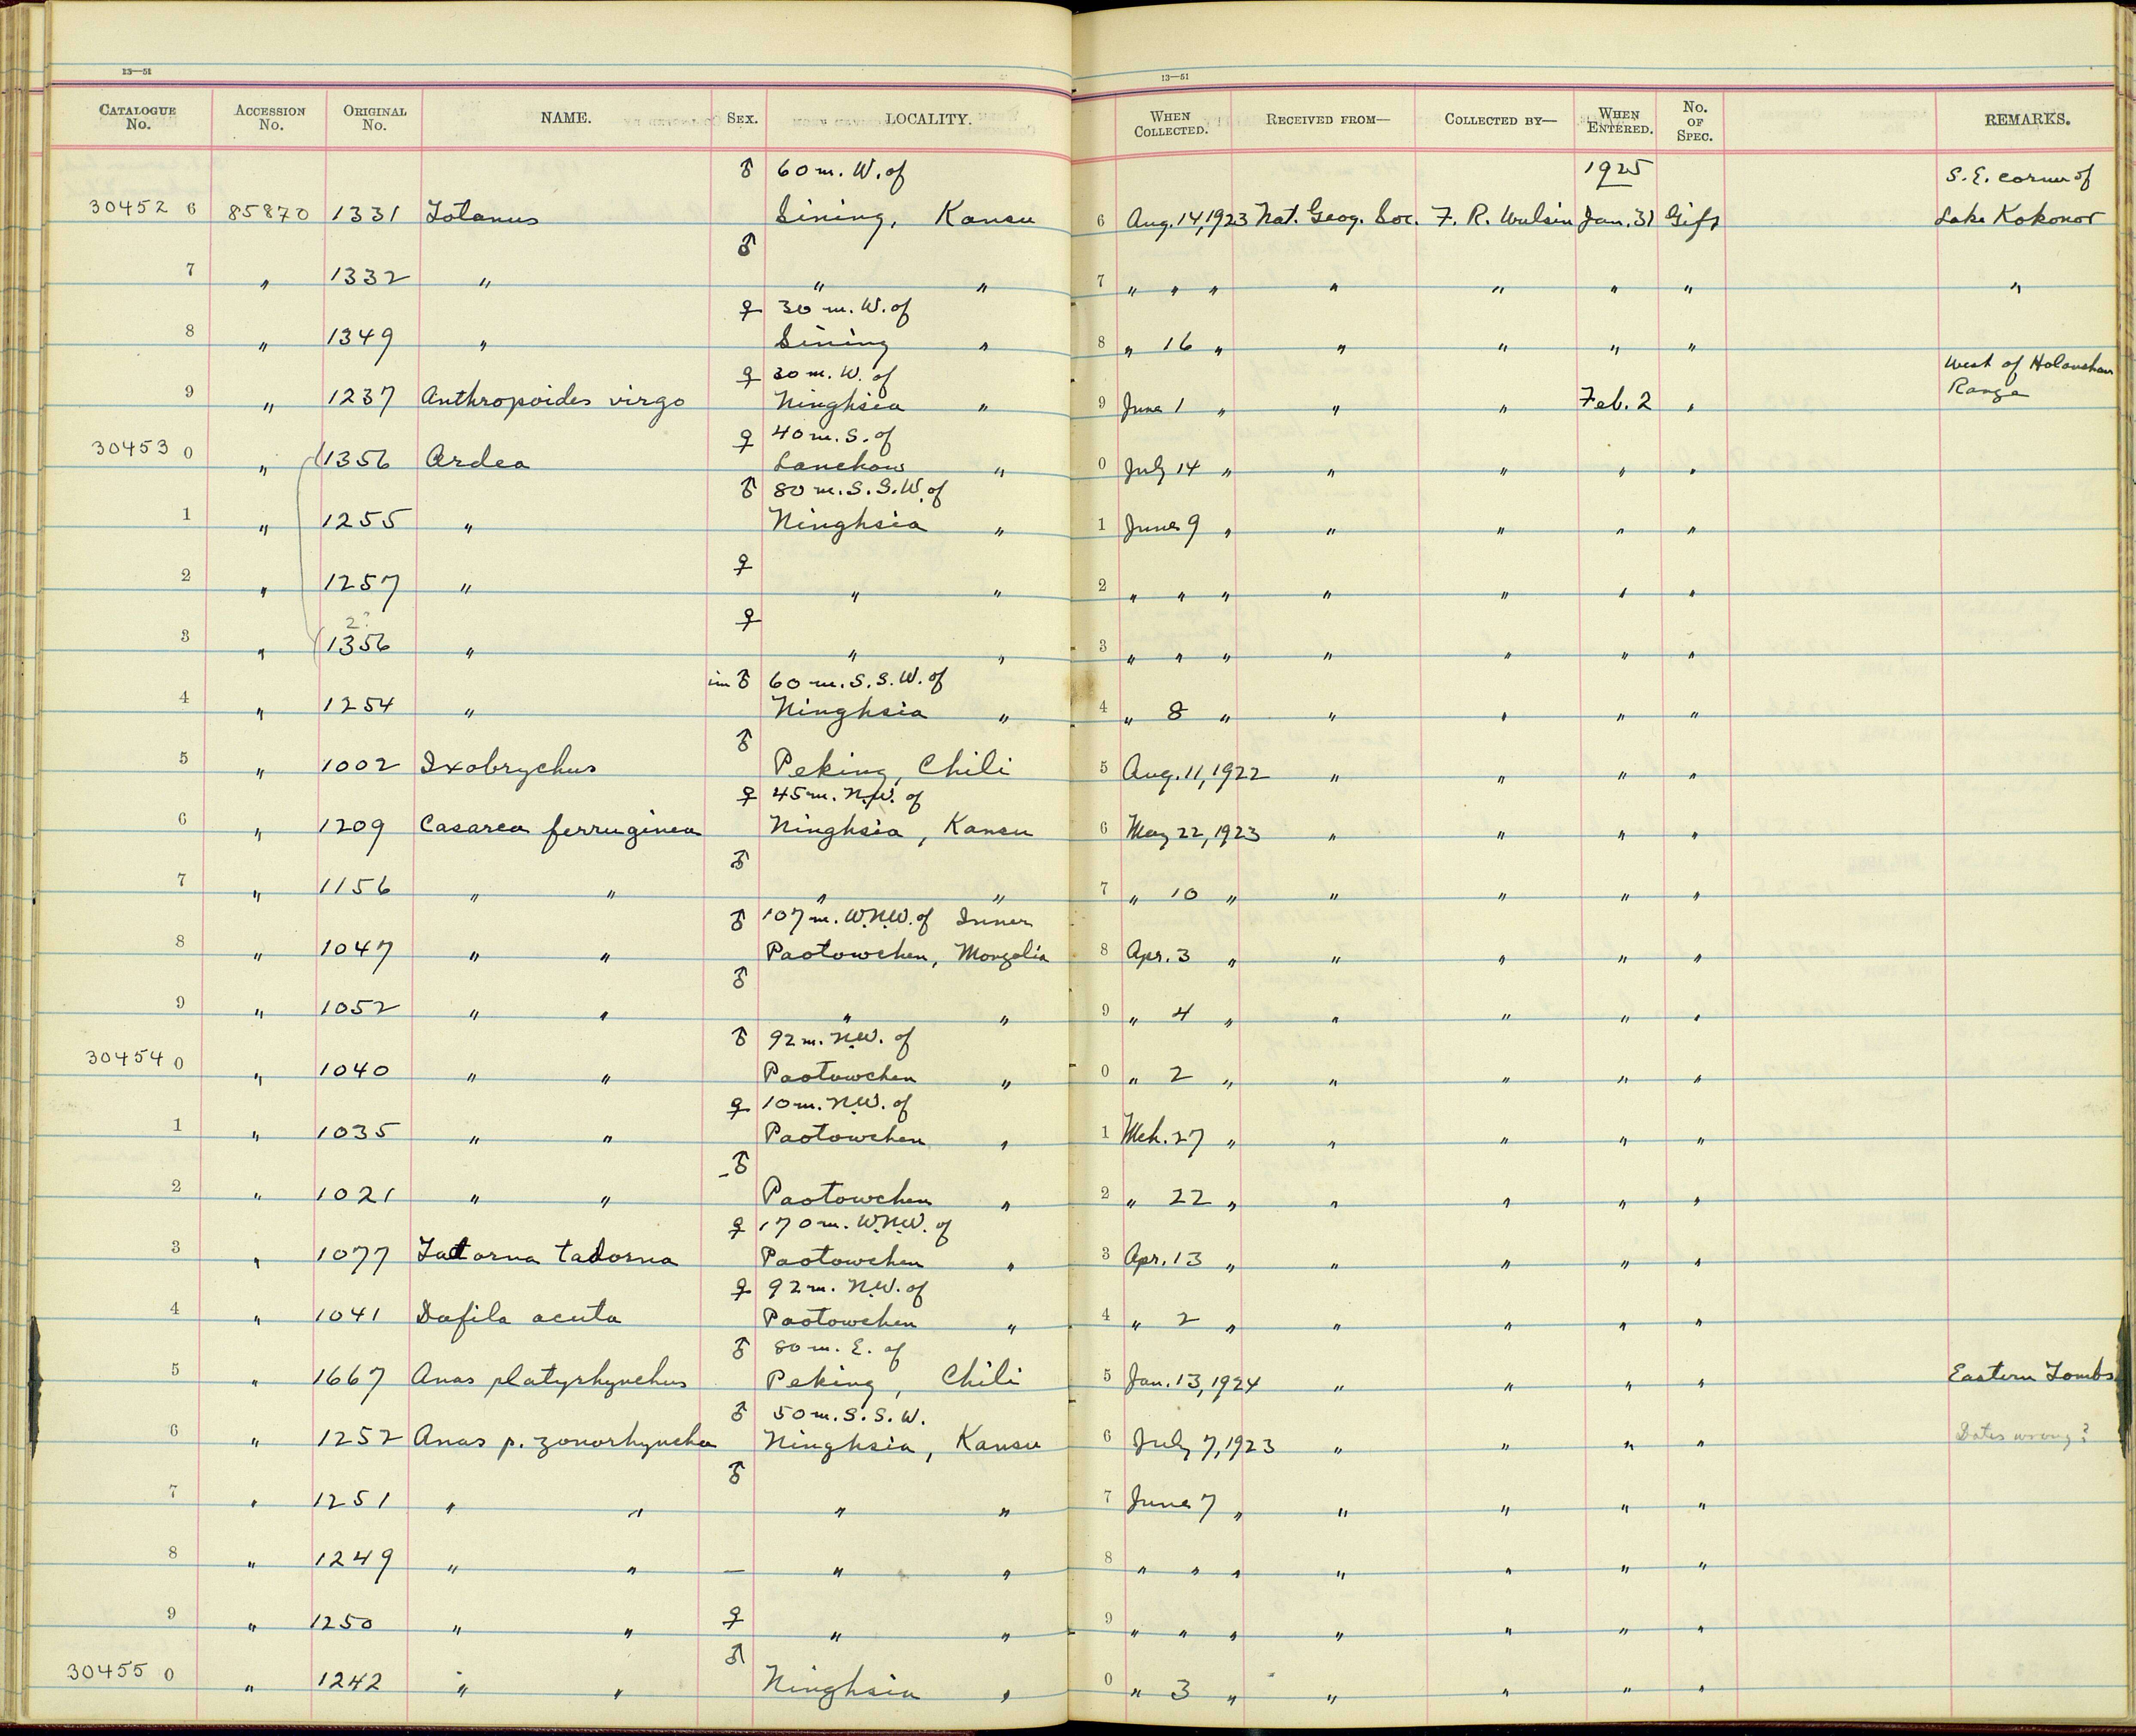 13—51
13—51
CATALOGUE No. ACCESSION No. ORIGINAL No. NAME. SEX. LOCALITY. WHEN COLLECTED. RECEIVED FROM— COLLECTED BY— WHEN ENTERED. No. OF SPEC. REMARKS.
♂ 60 m. W. of 1925 S. E. corner of
30452 6 85870 1331 Totanus Sining, Kansu 6 Aug. 14, 1923 Nat. Geog. Soc. F. R. Wulsin Jan. 31 Gift Lake Kokonor
♂
7 " 1332 " " " 7 " " " " " " " "
♀ 30 m. W. of
8 " 1349 " Sining " 8 " 16 " " " " "
♀ 30 m. W. of West of Holanshan
9 " 1237 Anthropoides virgo Ninghsia " 9 June 1 " " " Feb. 2 " Range
♀ 40 m. S. of
30453 0 " (1356 Ardea Lanchow " 0 July 14 " " " " "
♂ 80 m. S. S. W. of
1 " 1255 " Ninghsia " 1 June 9 " " " " "
♀
2 " 1257 " " " 2 " " " " " " "
2? ♀
3 " (1356 " " " 3 " " " " " " "
im ♂ 60 m. S. S. W. of
4 " 1254 " Ninghsia " 4 " 8 " " " " "
♂
5 " 1002 Ixobrychus Peking, Chili 5 Aug. 11, 1922 " " " "
♀ 45 m. N.W. of
6 " 1209 Casarea ferruginea Ninghsia, Kansu 6 May 22, 1923 " " " "
♂
7 " 1156 " " " " 7 " 10 " " " " "
♂ 107 m. W.N.W. of Inner
8 " 1047 " " Paotowchen, Mongolia 8 Apr. 3 " " " " "
♂
9 " 1052 " " " " 9 " 4 " " " " "
♂ 92 m. N.W. of
30454 0 " 1040 " " Paotowchen " 0 " 2 " " " " "
♀ 10 m. N.W. of
1 " 1035 " " Paotowchen " 1 Mch. 27 " " " " "
♂
2 " 1021 " " Paotowchen " 2 " 22 " " " " "
♀ 170 m. W.N.W. of
3 " 1077 Tadorna tadorna Paotowchen " 3 Apr. 13 " " " " "
♀ 92 m. N.W. of
4 " 1041 Dafila acuta Paotowchen " 4 " 2 " " " " "
♂ 80 m. E. of
5 " 1667 Anas platyrhynchus Peking, Chili 5 Jan. 13, 1924 " " " " Eastern Tombs
♂ 50 m. S. S. W.
6 " 1252 Anas p. zonorhyncha Ninghsia, Kansu 6 July 7, 1923 " " " " Dates wrong?
♂
7 " 1251 " " " " 7 June 7 " " " " "
8 " 1249 " " — " " 8 " " " " " " "
9 " 1250 " " ♀ " " 9 " " " " " " "
♂
30455 0 " 1242 " " Ninghsia " 0 " 3 " " " " "